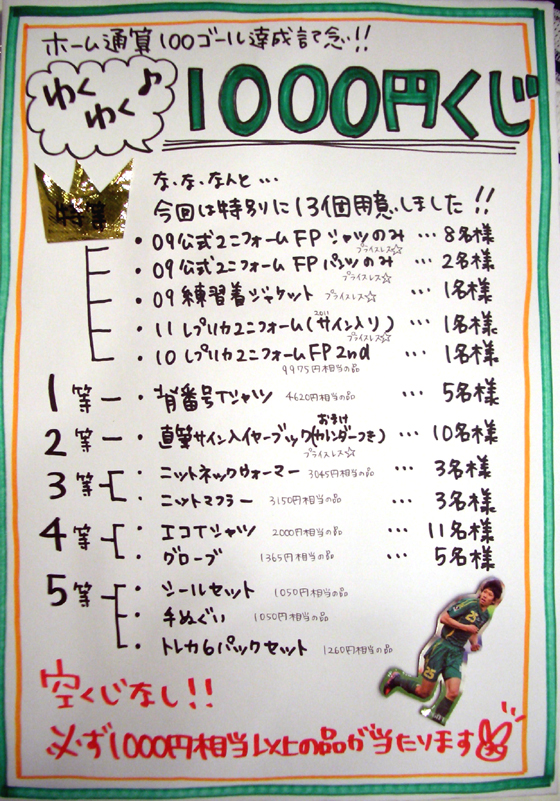 ホーム通算100ゴール達成記念!!
わくわく♪
1000円くじ
特等
な、な、なんと…
今回は特別に13個用意しました!!
・09公式ユニフォームFPシャツのみ プライスレス☆ … 8名様
・09公式ユニフォームFPパンツのみ プライスレス☆ … 2名様
・09練習着ジャケット プライスレス☆ … 1名様
・11レプリカユニフォーム(2011サイン入り) プライスレス☆ … 1名様
・10レプリカユニフォームFP2nd 9975円相当の品 … 1名様
1等 ・背番号Tシャツ 4620円相当の品 … 5名様
2等 ・直筆サイン入イヤーブック(おまけカレンダーつき) プライスレス☆ … 10名様
3等 ・ニットネックウォーマー 3045円相当の品 … 3名様
・ニットマフラー 3150円相当の品 … 3名様
4等 ・エコTシャツ 2000円相当の品 … 11名様
・グローブ 1365円相当の品 … 5名様
5等 ・シールセット 1050円相当の品
・手ぬぐい 1050円相当の品
・トレカ6パックセット 1260円相当の品
25
25
空くじなし!!
必ず1000円相当以上の品が当たります